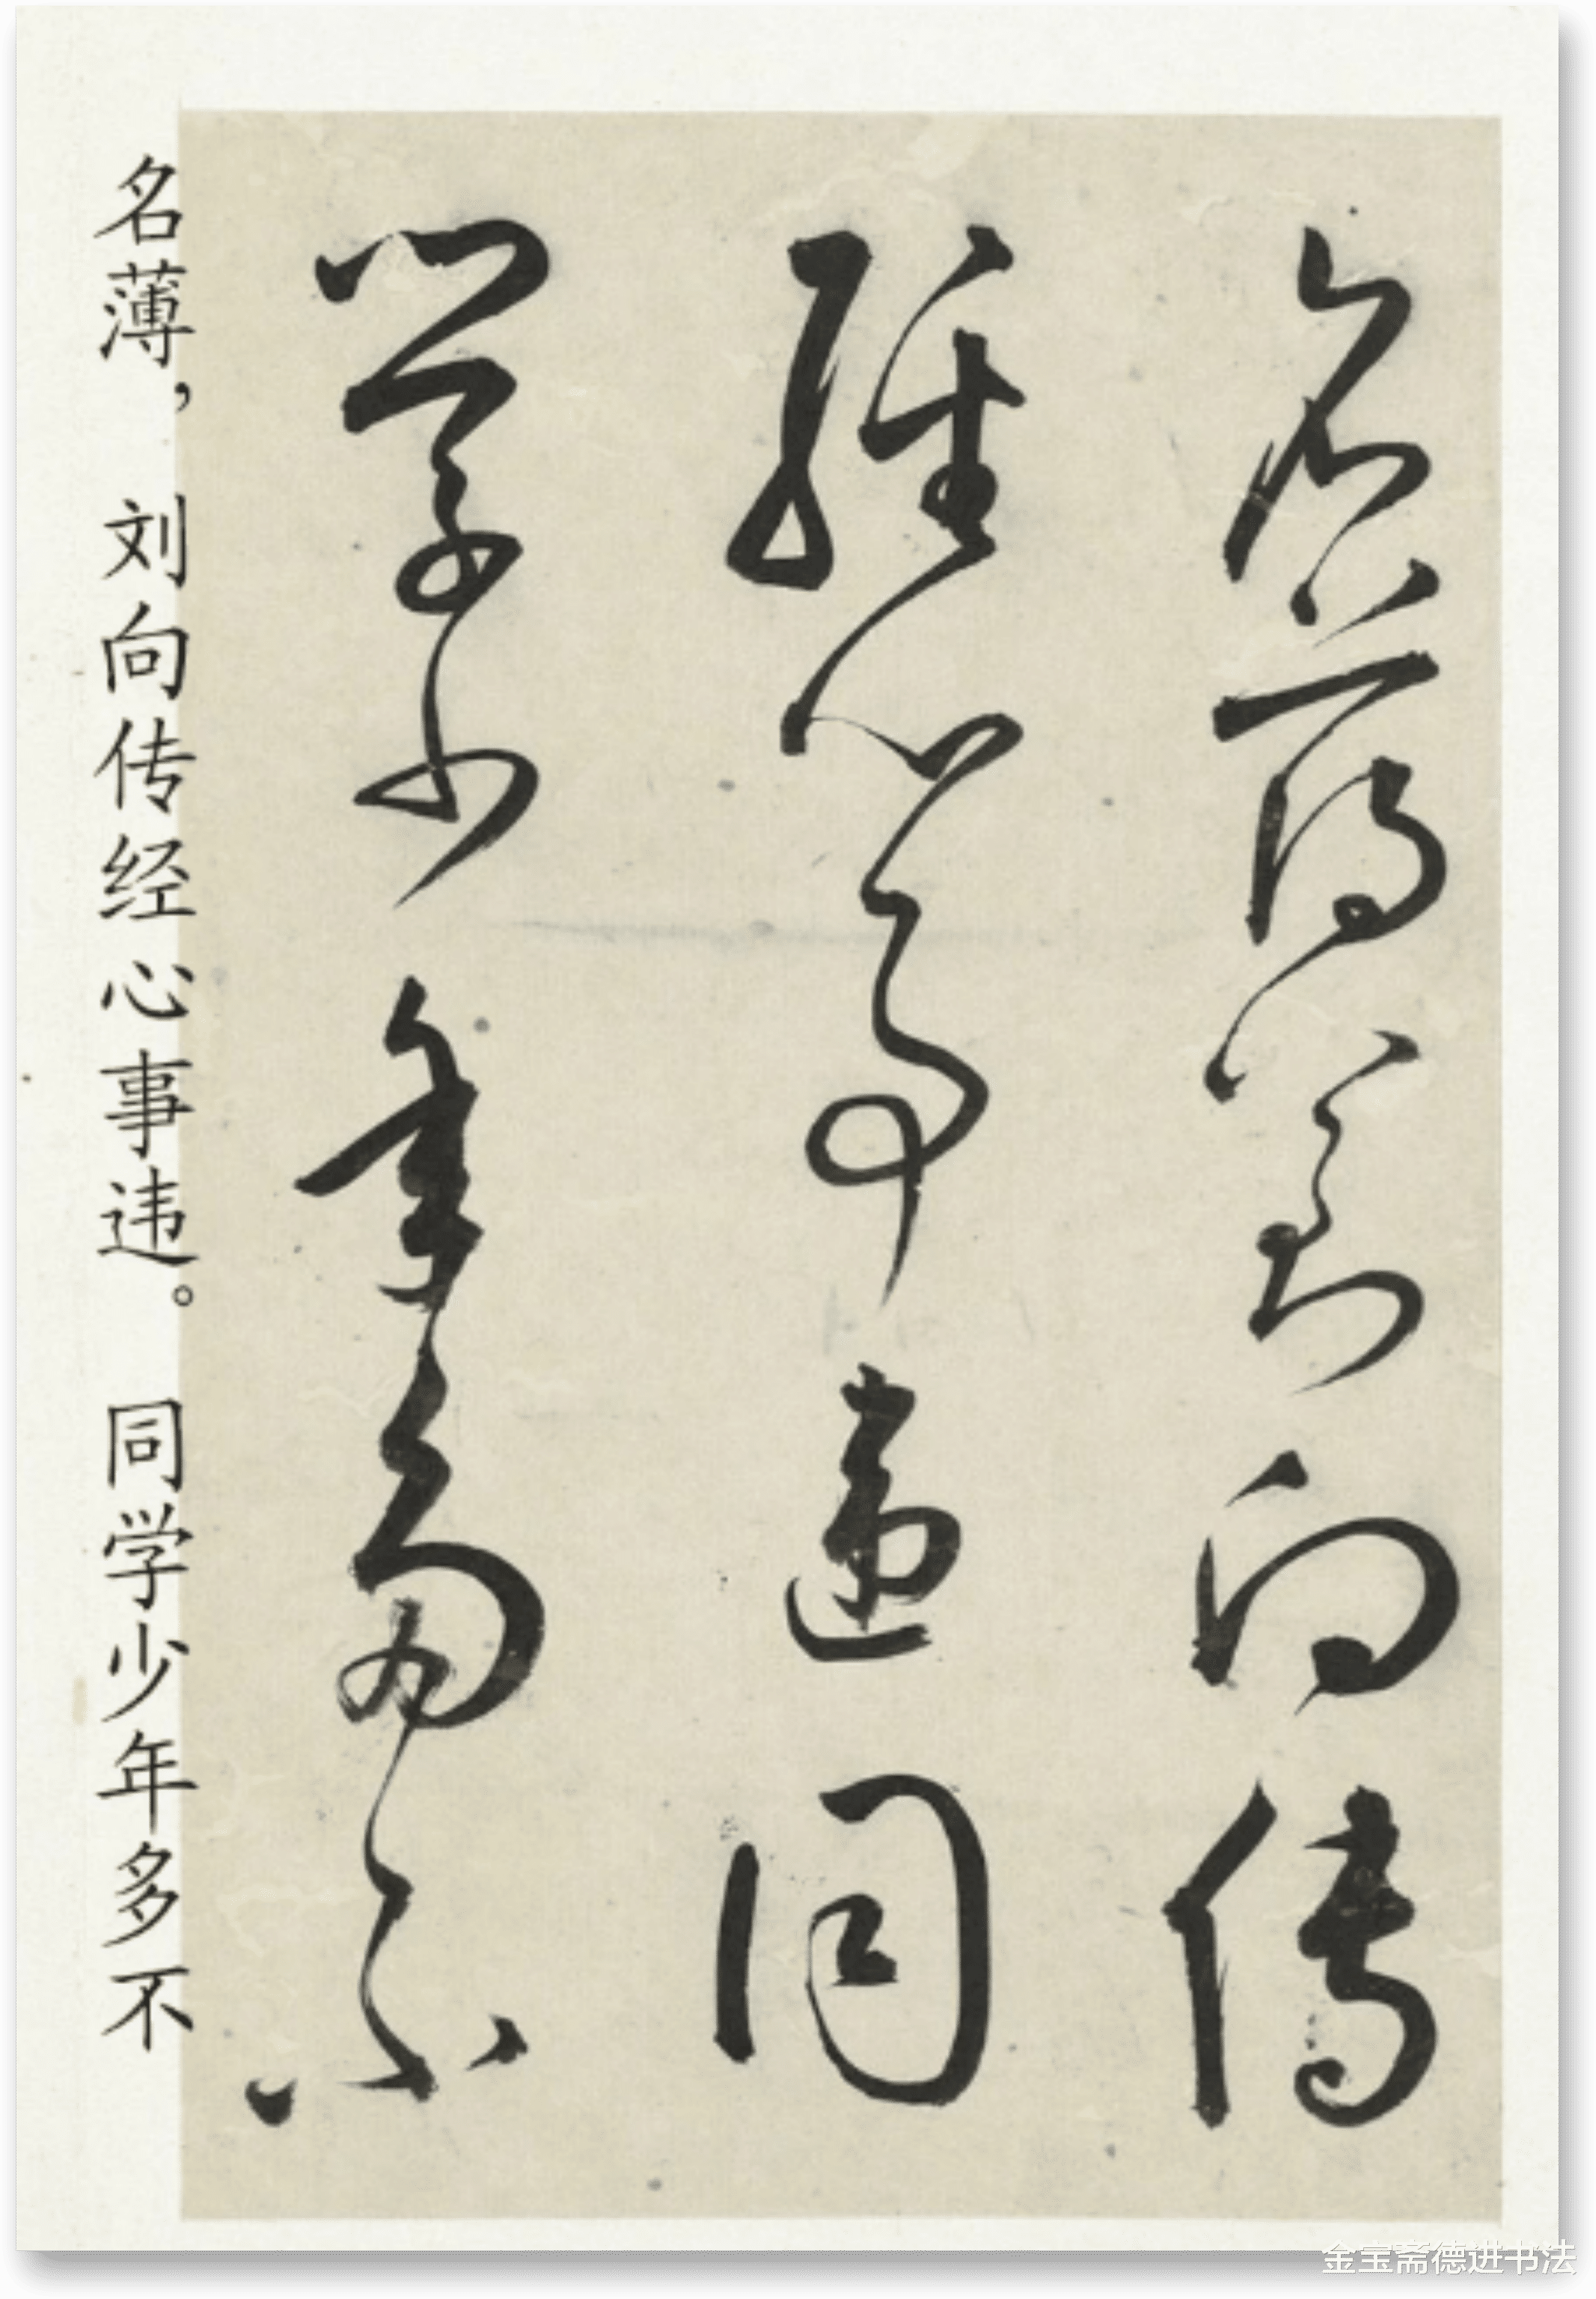 名薄劉向傳
經心事違同
學少年多不
名薄，刘向传经心事违。同学少年多不
金宝斋德进书法